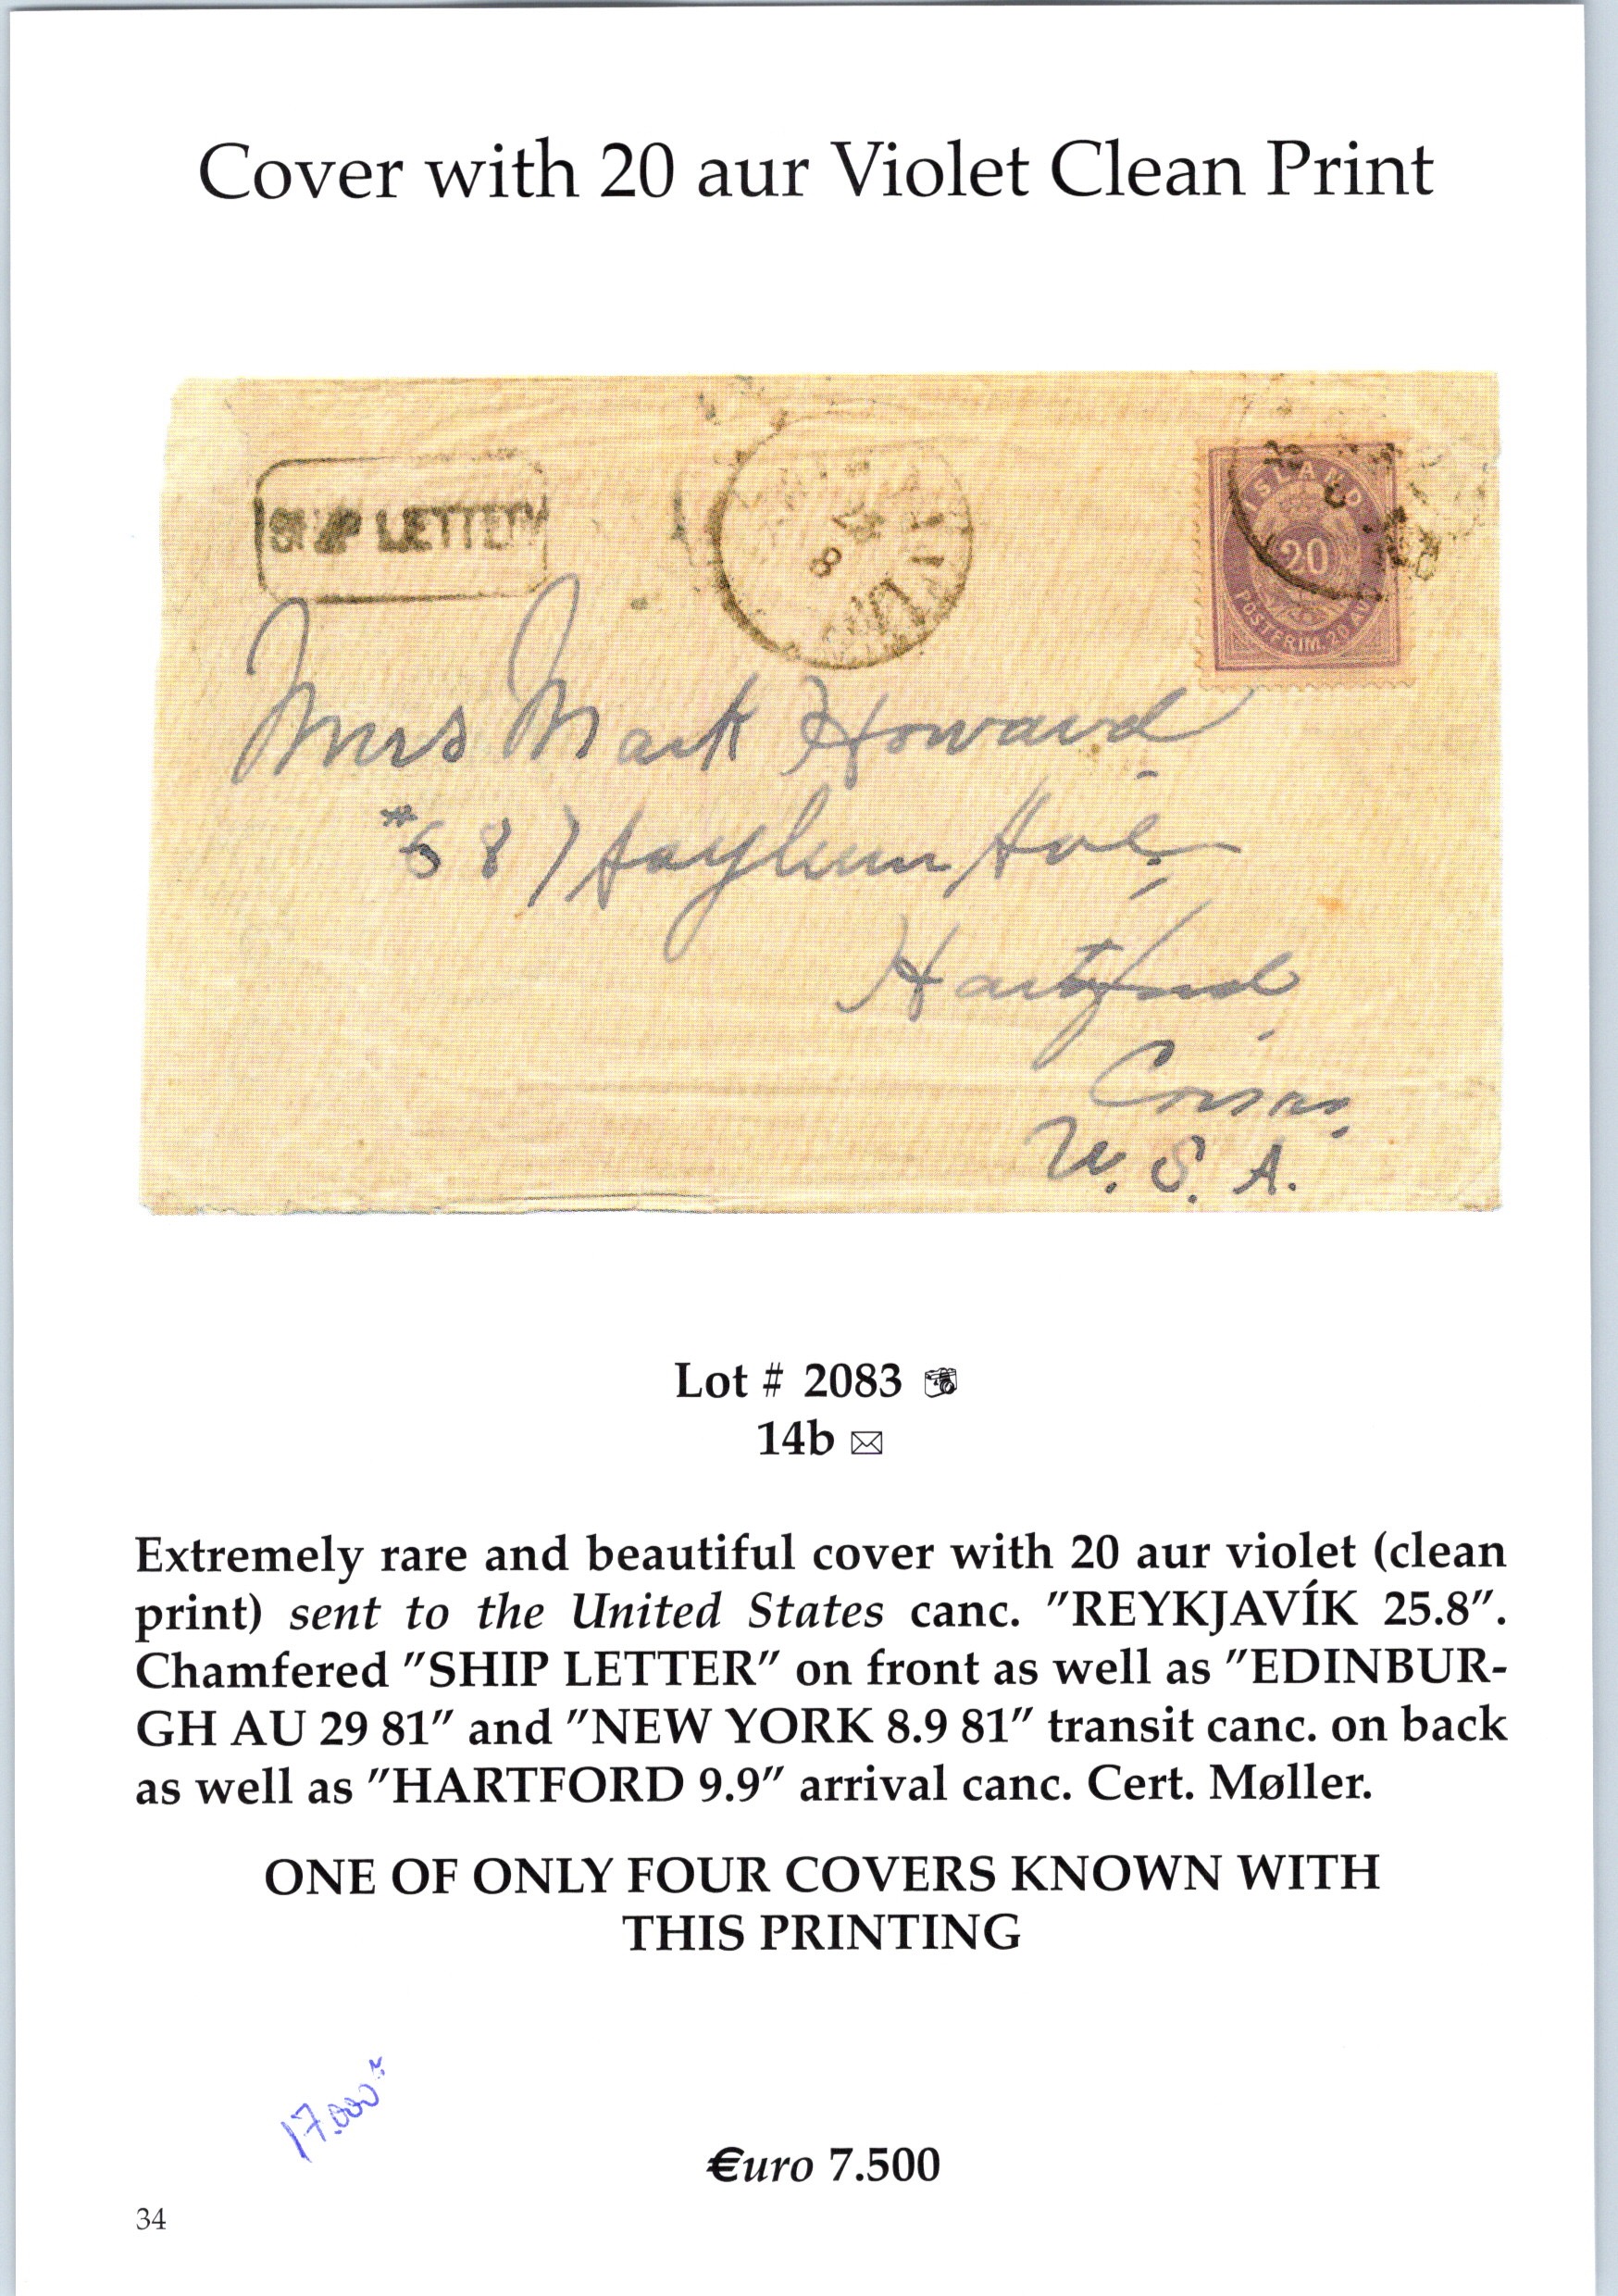 Cover with 20 aur Violet Clean Print
SHIP LETTER
8
ISLAND
20
PÓSTFRIM. 20 AU
Mrs Mark Howard
#687 Asylum Ave.
Hartford
Conn.
U. S. A.
Lot # 2083
14b
Extremely rare and beautiful cover with 20 aur violet (clean
print) sent to the United States canc. "REYKJAVÍK 25.8".
Chamfered "SHIP LETTER" on front as well as "EDINBUR-
GH AU 29 81" and "NEW YORK 8.9 81" transit canc. on back
as well as "HARTFORD 9.9" arrival canc. Cert. Møller.
ONE OF ONLY FOUR COVERS KNOWN WITH
THIS PRINTING
17.000
€uro 7.500
34